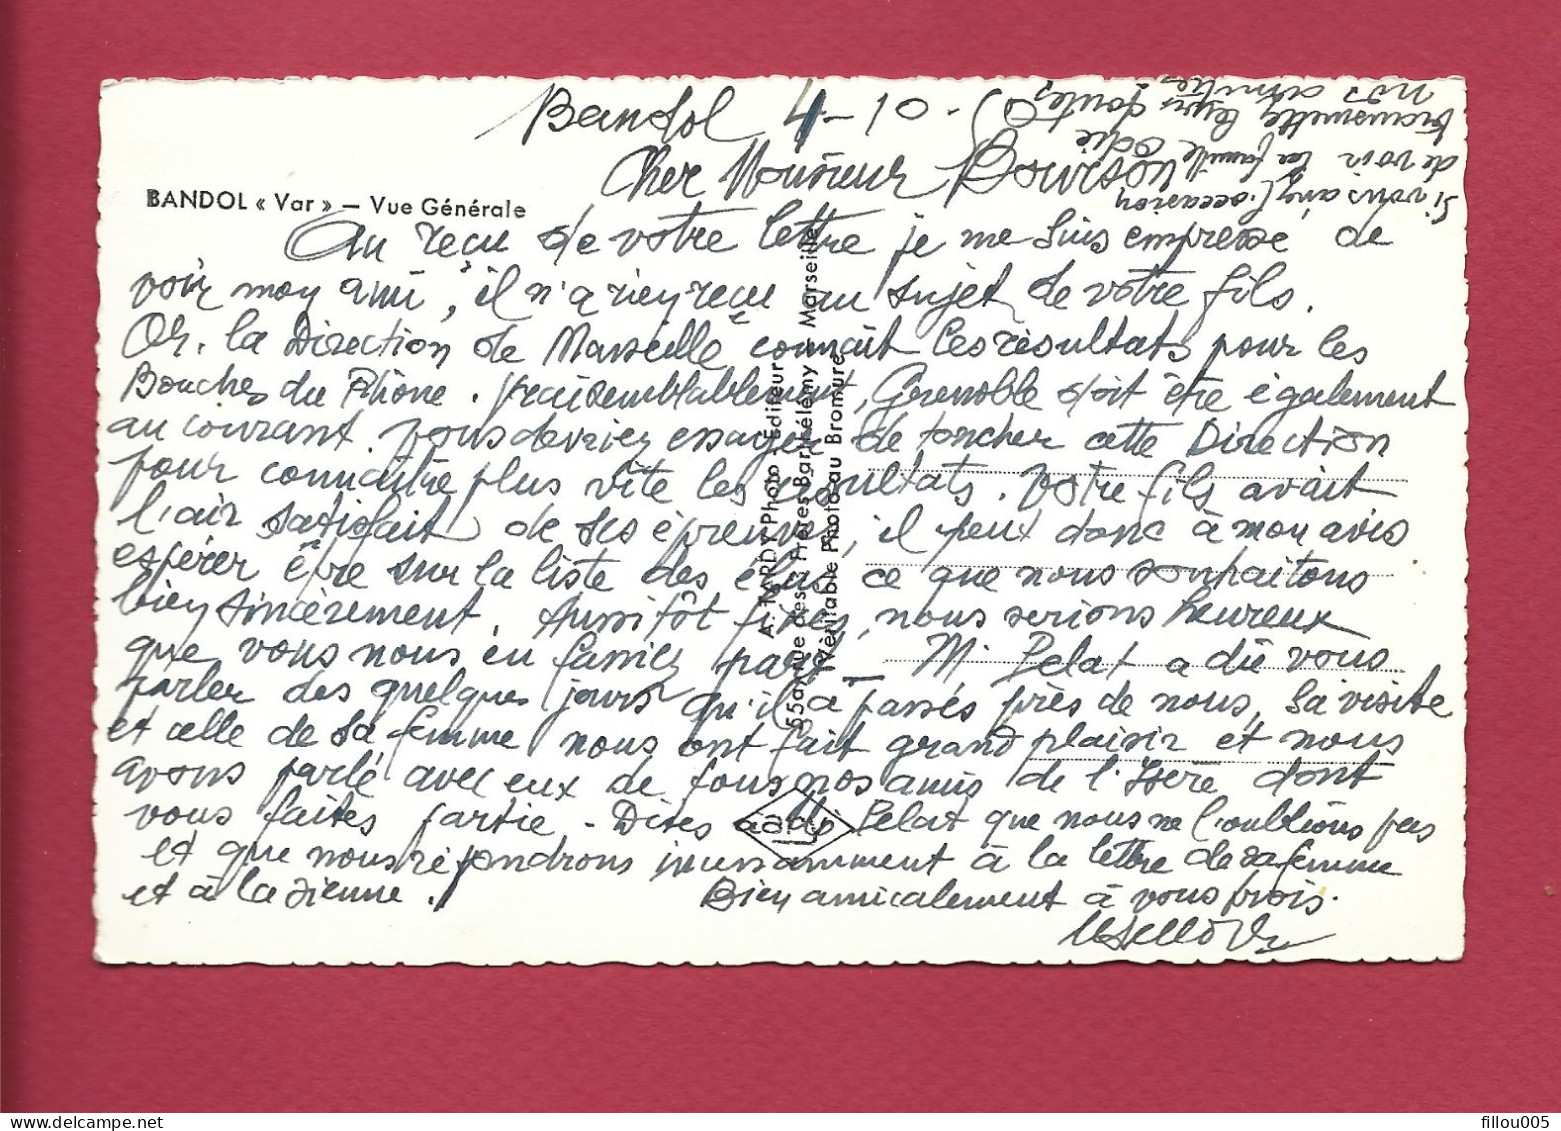 Bandol 4-10-
Cher Monsieur Bourson
BANDOL « Var » — Vue Générale
Au reçu de votre lettre je me suis empressé de
voir mon ami, il n'a rien reçu au sujet de votre fils.
Or, la Direction de Marseille connait les résultats pour les
Bouches du Rhône. Vraisemblablement, Grenoble doit être également
au courant. Vous devriez essayer de toucher cette Direction
pour connaître plus vite les résultats. Votre fils avait
l'air satisfait de ses épreuves, il peut donc à mon avis
espérer être sur la liste des élus ce que nous souhaitons
bien sincèrement. Aussitôt fixés, nous serions heureux
que vous nous en fassiez part _ M. Pelat a dû vous
parler des quelques jours qu'il a passés près de nous, sa visite
et celle de sa femme nous ont fait grand plaisir et nous
avons parlé avec eux de tous nos amis de l'Isère dont
vous faites partie. - Dites à M. Pelat que nous ne l'oublions pas
et que nous répondrons incessamment à la lettre de sa femme
et à la sienne. Bien amicalement à vous trois.
Si vous avez l'occasion
de voir la famille
transmettez leur toutes
nos amitiés
A. TARDY Photo - Editeur
55 avenue des Frères Barthélémy - Marseille
Véritable Photo au Bromure